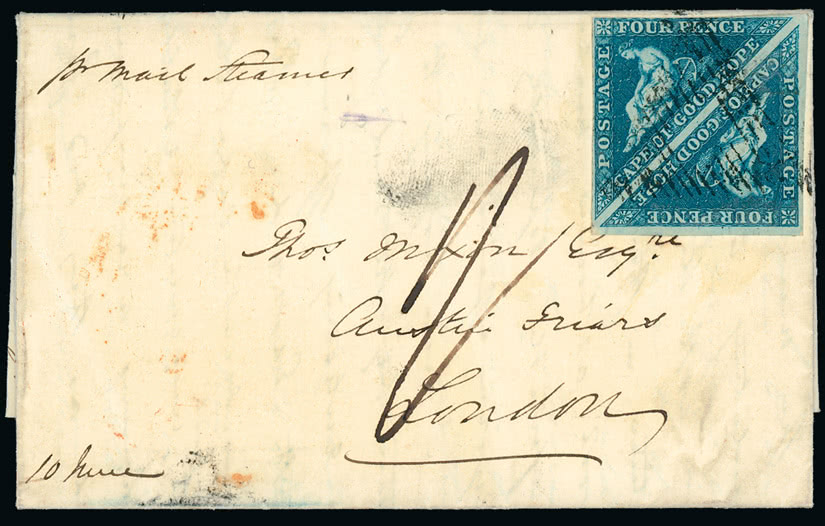 pr Mail Steamer
FOUR PENCE
POSTAGE
CAPE OF GOOD HOPE
CAPE OF GOOD HOPE
POSTAGE
FOUR PENCE
Thos. Mixon Esqre
Austin Friars
London
10 June